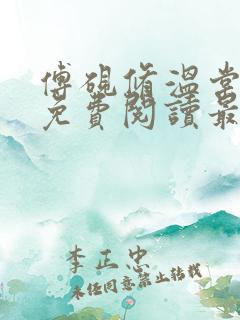 傅硯脩溫棠
免費閱讀最
李正忠
未经同意禁止转载